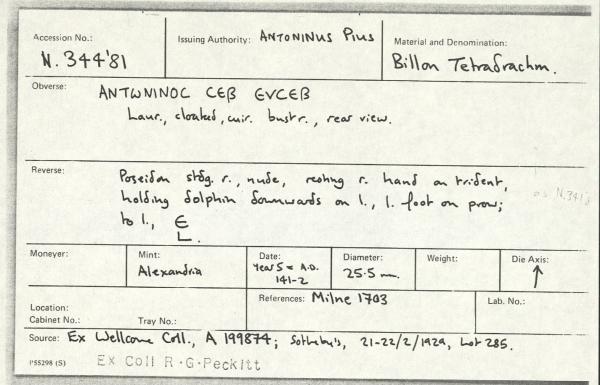 Accession No.: N. 344'81
Issuing Authority: ANTONINUS PIUS
Material and Denomination: Billon Tetradrachm.
Obverse: ANTωNINOC CEB EVCEB
Laur., cloaked, cuir. bust r., rear view.
Reverse: Poseidon stdg. r., nude, resting r. hand on trident,
holding dolphin downwards on l., l. foot on prow;
to l., E
L.
as N.341'8
Moneyer:
Mint: Alexandria
Date: Year 5 = A.D. 141-2
Diameter: 25.5 mm.
Weight:
Die Axis: ↑
Location:
Cabinet No.: Tray No.:
References: Milne 1703
Lab. No.:
Source: Ex Wellcome Coll., A 199874; Sotheby's, 21-22/2/1929, Lot 285.
P55298 (S) Ex Coll R.G.Peckitt